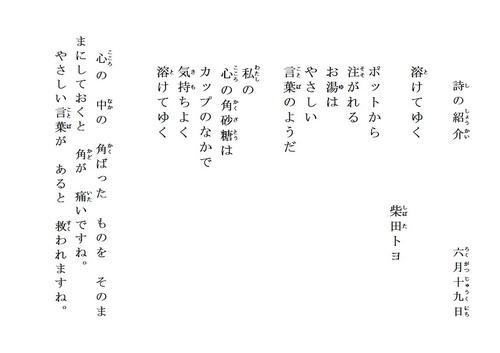 詩の紹介 六月十九日
溶けてゆく
柴田トヨ
ポットから
注がれる
お湯は
やさしい
言葉のようだ
私の
心の角砂糖は
カップのなかで
気持ちよく
溶けてゆく
心の 中の 角ばった ものを そのま
まにしておくと 角が 痛いですね。
やさしい言葉が あると 救われますね。